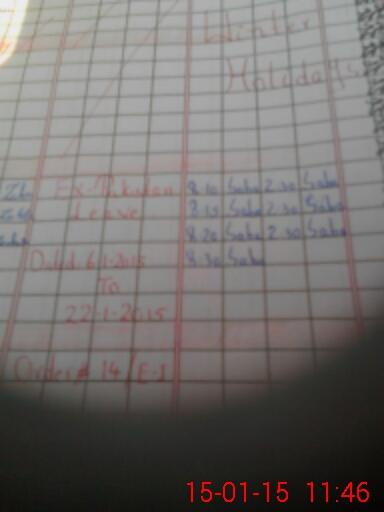 Winter
Holedays
Ex-Pakistan 8.10 Saba 2.30 Saba
Leave 8.15 Saba 2.30 Saba
8.20 Saba 2.30 Saba
6.1.2015 8.30 Saba
To
22-1-2015
Order # 14/E-1
15-01-15 11:46